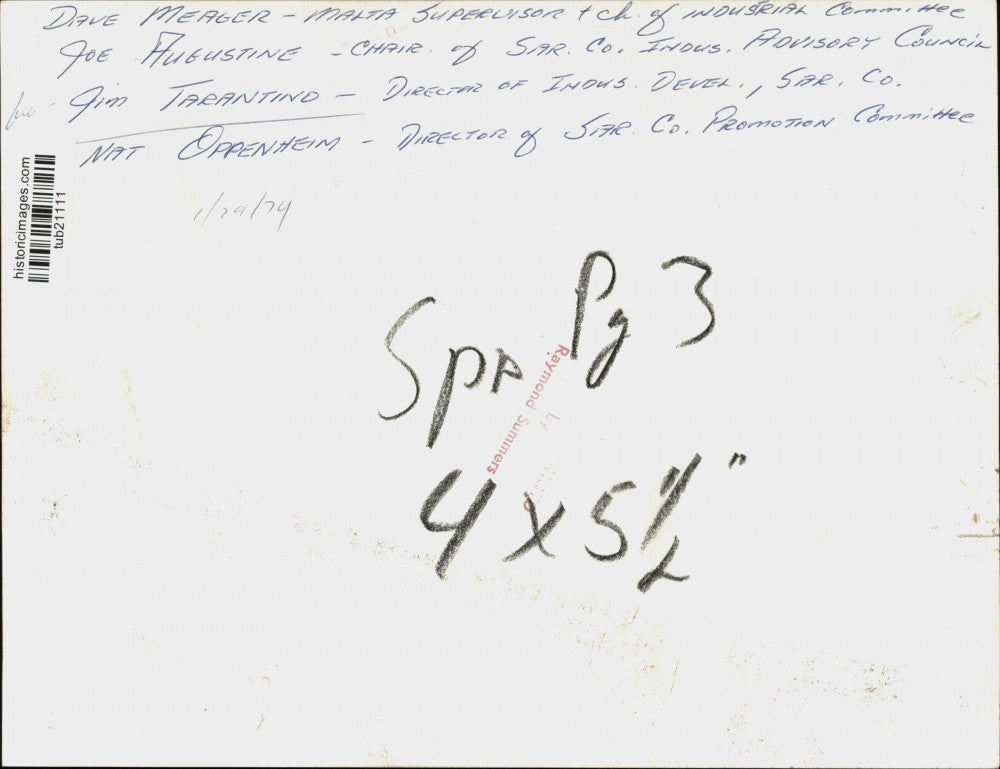 DAVE MEAGER - MALTA SUPERVISOR + ch. of INDUSTRIAL Committee
JOE AUGUSTINE - CHAIR. of SAR. CO. INDUS. ADVISORY COUNCIL
Jim TARANTINO - DIRECTOR OF INDUS. DEVEL., SAR. CO.
NAT OPPENHEIM - DIRECTOR of SAR. CO. PROMOTION Committee
historicimages.com
tub21111
1/29/74
Spa Pg 3
by
Raymond Summers
4 x 5 1/2"